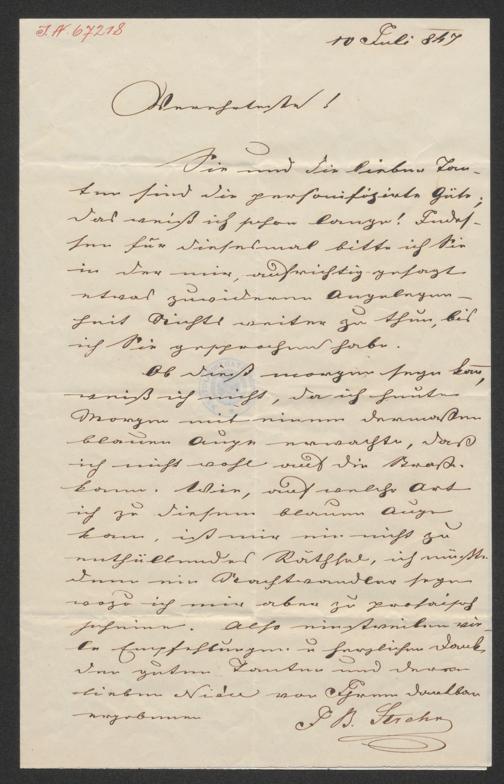 J.N. 67218
10 Juli 847
Verehrteste!
Sie und die lieben Tan-
ten sind die personifizirte Güte;
das weiß ich schon lange! Indes-
sen für diesesmal bitte ich Sie
in der mir, aufrichtig gesagt
etwas zuwideren Angelegen-
heit Nichts weiter zu thun, bis
ich Sie gesprochen habe.
Ob dieß morgen seyn kan,
weiß ich nicht, da ich heute
Morgen mit einem dermaßen
blauen Auge erwachte, daß
ich nicht wohl auf die Straße
kann. Wie, auf welche Art
ich zu diesem blauen Auge
kam, ist mir ein nicht zu
enthüllendes Räthsel, ich müßte
denn ein Nachtwandler seyn
wozu ich mir aber zu prosaisch
scheine. Also einstweilen vie-
le Empfehlungen u herzlichen Dank
den guten Tanten und deren
lieben Nièce von Ihrem dankbar
ergebenen
J B.